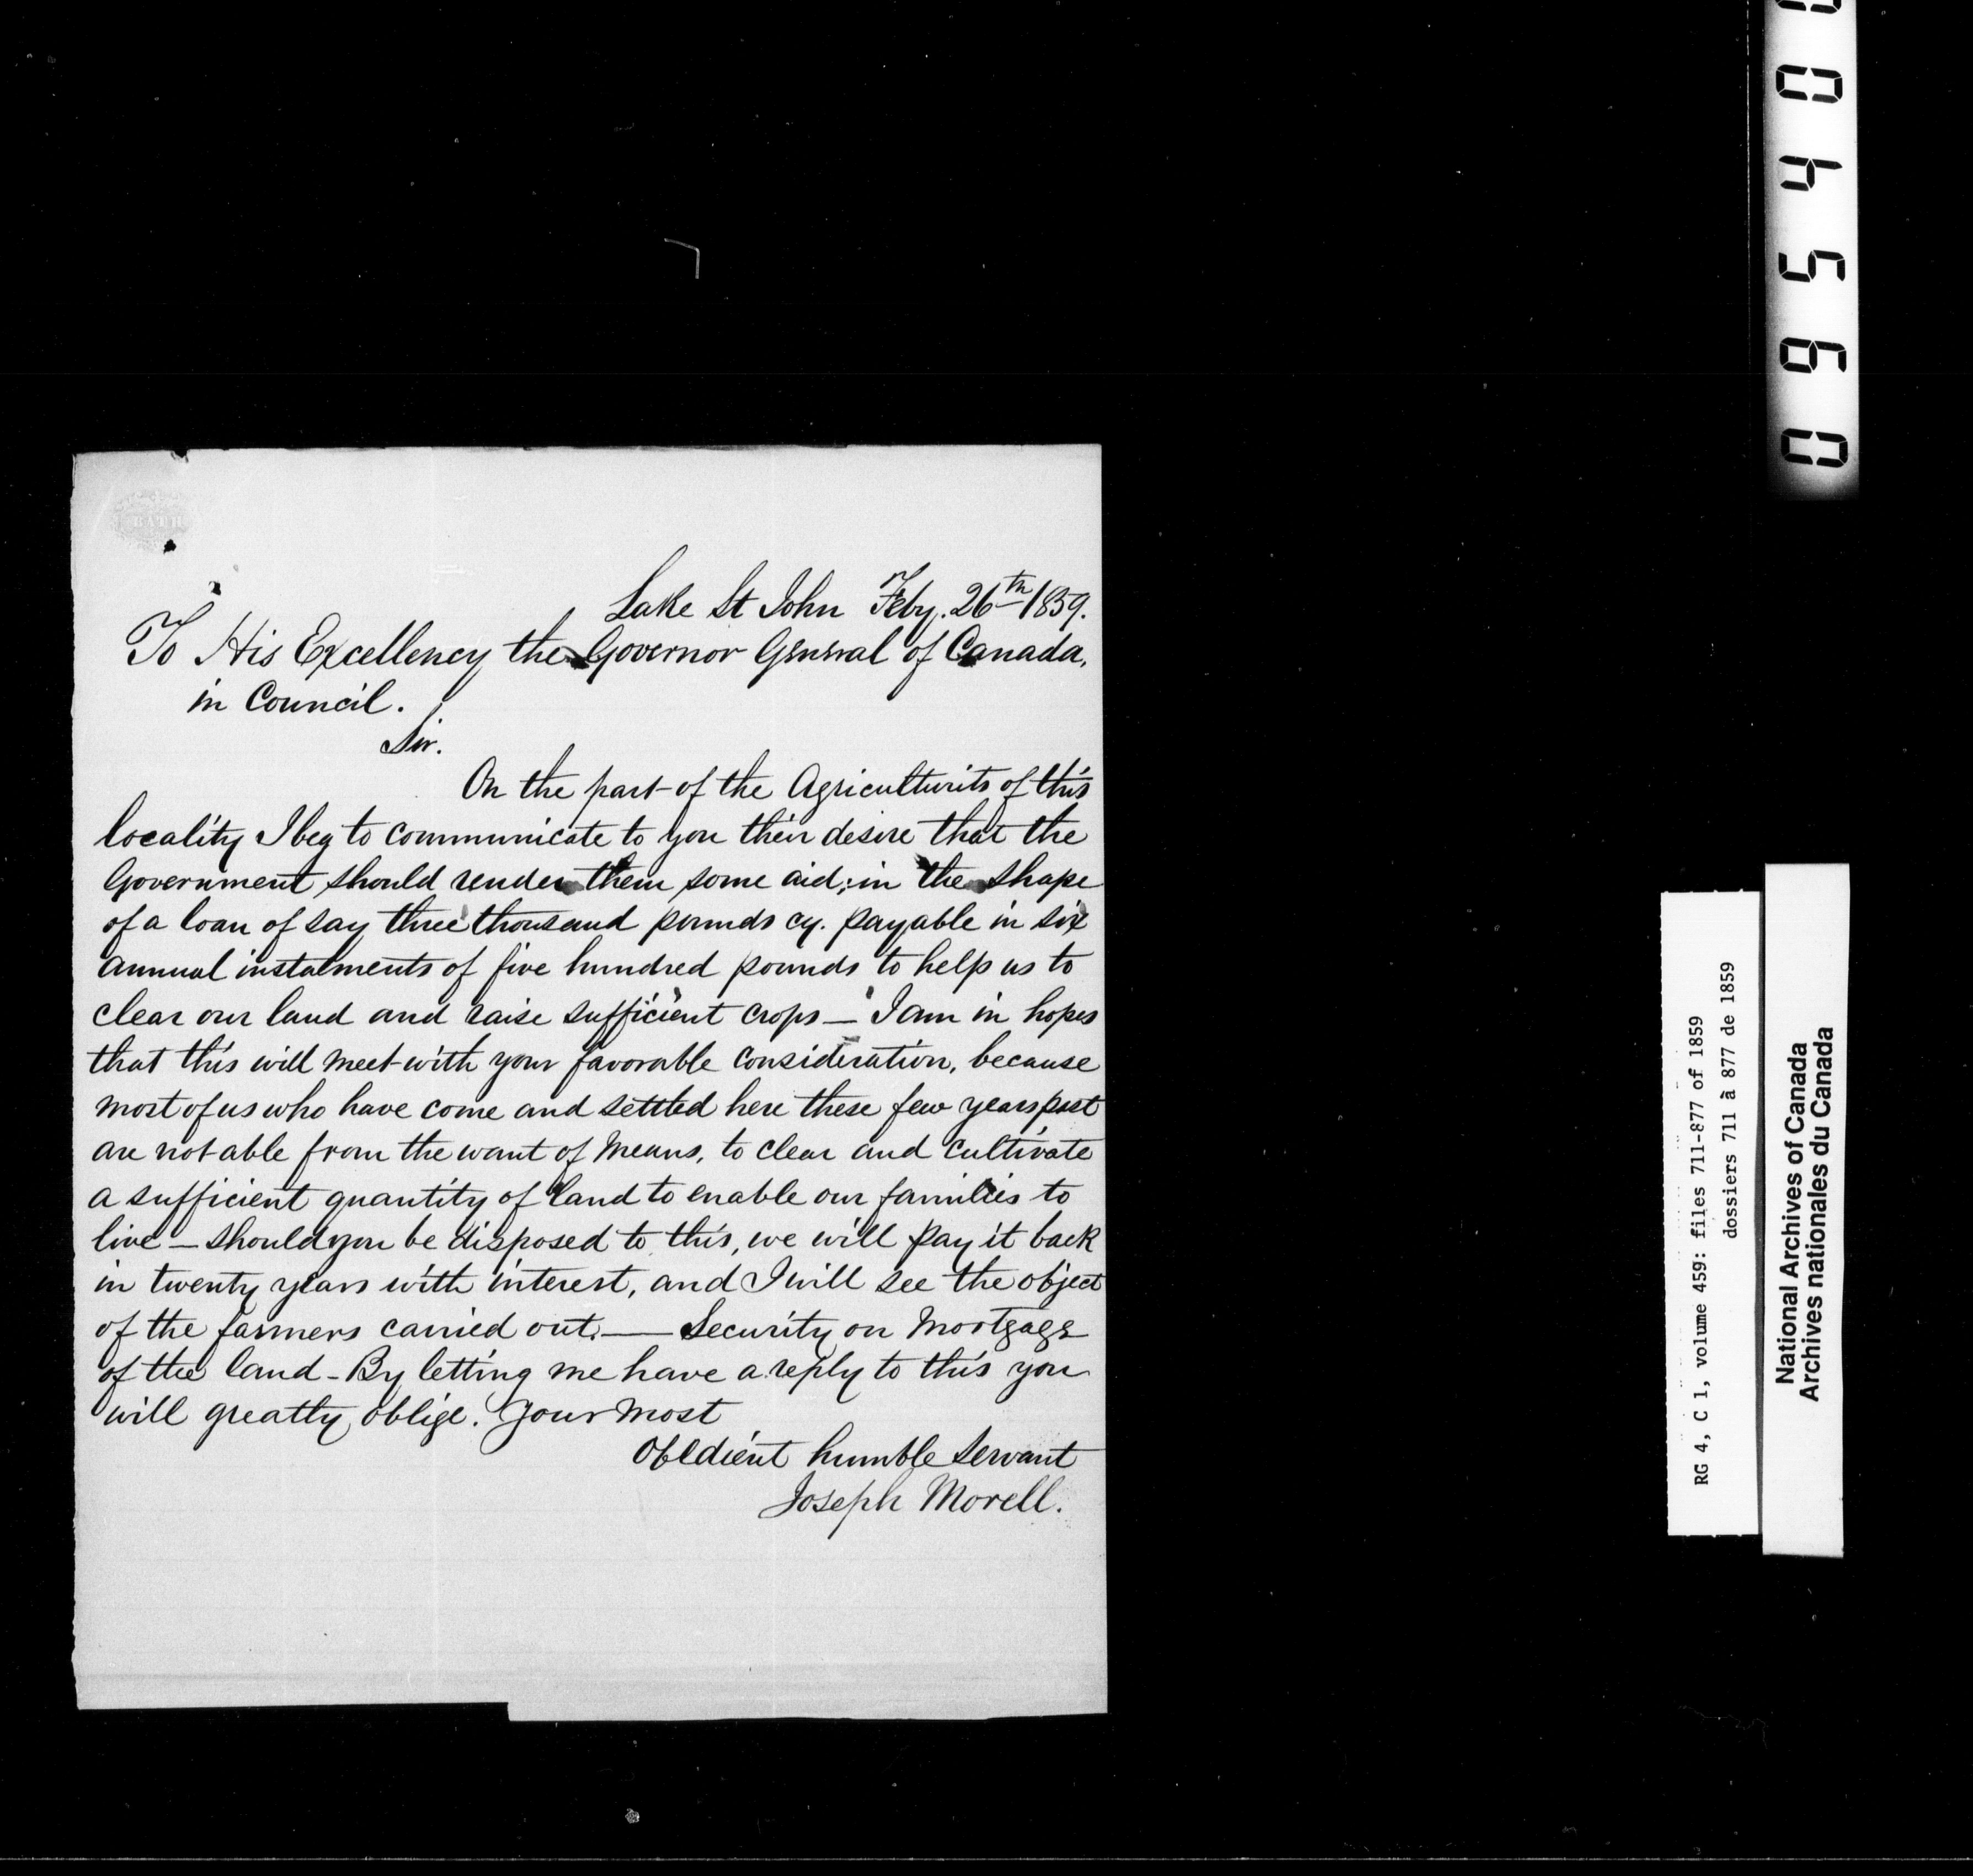 BATH
Lake St John Feby. 26th 1859.
To His Excellency the Governor General of Canada,
in Council.
Sir.
On the part of the Agriculturits of this
locality I beg to communicate to you their desire that the
Government should render them some aid; in the shape
of a loan of say three thousand pounds cy. payable in six
annual instalments of five hundred pounds to help us to
clear our land and raise sufficient crops — I am in hopes
that this will meet with your favorable consideration, because
most of us who have come and settled here these few years past
are not able from the want of means, to clear and cultivate
a sufficient quantity of land to enable our families to
live — should you be disposed to this, we will pay it back
in twenty years with interest, and I will see the object
of the farmers carried out. — Security on Mortgage
of the land - By letting me have a reply to this you
will greatly oblige. Your most
Obedient humble Servant
Joseph Morell.
004560
RG 4, C 1, volume 459: files 711-877 of 1859
dossiers 711 à 877 de 1859
National Archives of Canada
Archives nationales du Canada